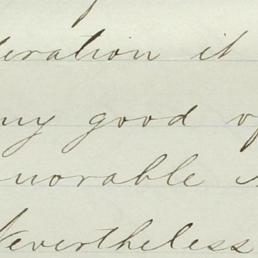 eration it
my good of
norable
Nevertheless